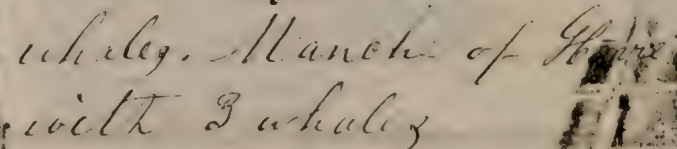 whales. Manche of Havre
with 3 whales